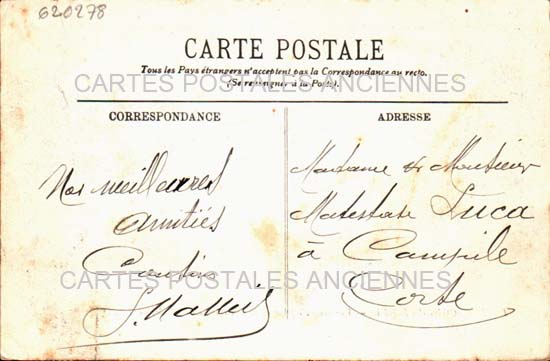 620278
CARTE POSTALE
Tous les Pays étrangers n'acceptent pas la Correspondance au recto.
(Se renseigner à la Poste).
CARTES POSTALES ANCIENNES
CORRESPONDANCE
Nos meilleures
amitiés
ADRESSE
Madame & Monsieur
Luca
à Campile
Corse
CARTES POSTALES ANCIENNES